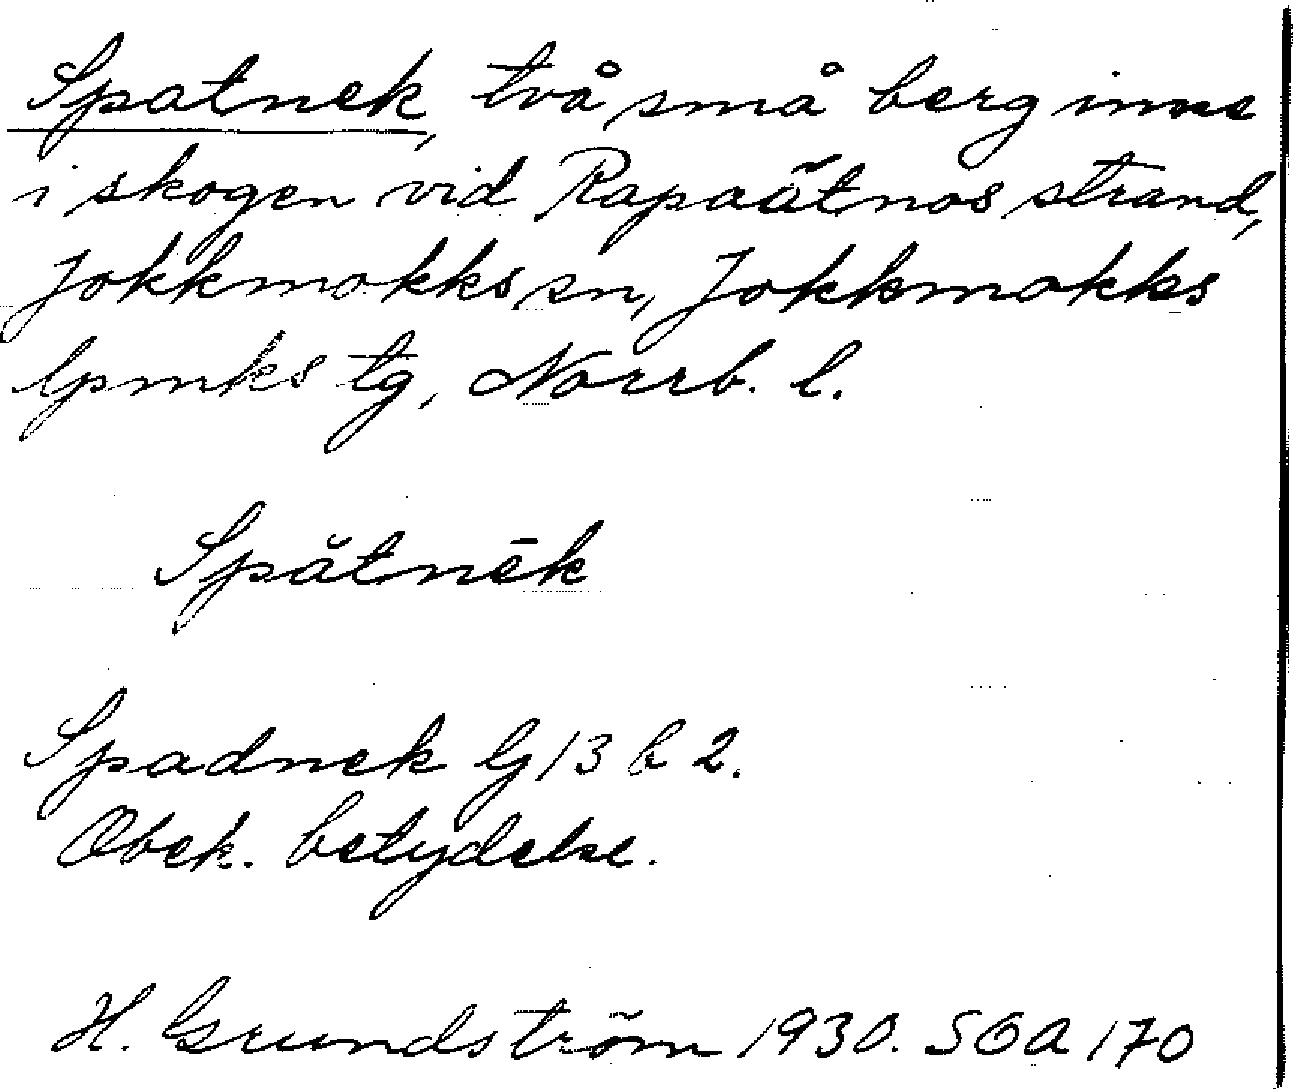 Spatnek, två små berg inne
i skogen vid Rapaätnos strand,
Jokkmokks sn, Jokkmokks
lpmks tg, Norrb. l.
Spătnēk
Spadnek lg 13 b 2.
Obek. betydelse.
H. Grundström 1930. SOA 170